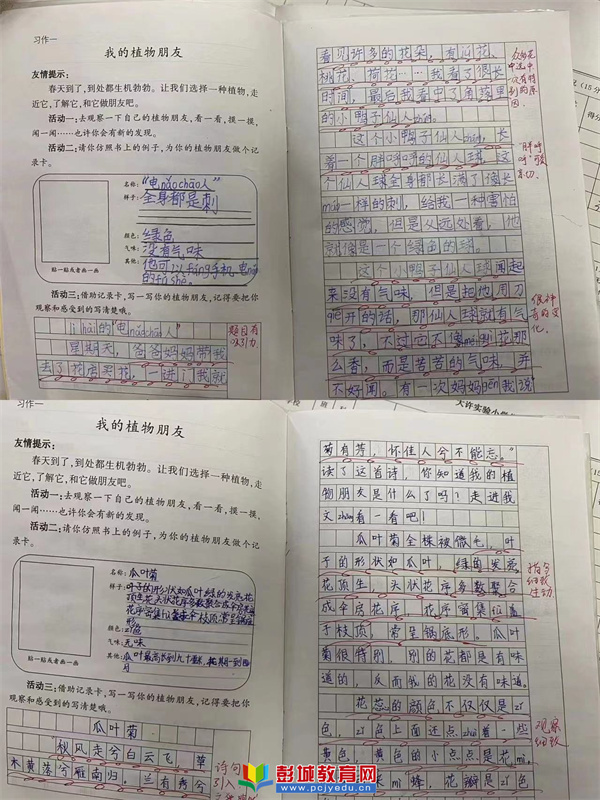 习作一
我的植物朋友
友情提示：
春天到了，到处都生机勃勃。让我们选择一种植物，走
近它，了解它，和它做朋友吧。
活动一：去观察一下自己的植物朋友，看一看，摸一摸，
闻一闻……也许你会有新的发现。
活动二：请你仿照书上的例子，为你的植物朋友做个记
录卡。
名称：“电nǎochāo人”
样子：全身都是刺
颜色：绿色
气味：没有气味
其他：他可以fáng手机、电nǎo
的fúshè。
贴一贴或者画一画
活动三：借助记录卡，写一写你的植物朋友，记得要把你
观察和感受到的写清楚哦。
lìhài的“电nǎochāo人”
星期天，爸爸妈妈带我
去了花店买花，一进门我就
题目有
吸引力
看见许多的花朵，有
桃花、荷花……我看了很长
时间，最后我看中了角落里
的小鸭子仙人
这个小鸭子仙人，长
着一个胖呼呼的仙人球，这
个仙人球全身都长满了像长
máo一样的刺，给我一种害怕
的感觉，但是从远处看，他
就像是一个绿色的球。
这个小鸭子仙人球闻起
来没有气味，但是把他用刀
开的话，那仙人球就有气
味了，不过它不像méi花那
么香，而是苦苦的气味，并
不好闻。有一次妈妈gēn我说
大许实验小
习作一
我的植物朋友
友情提示：
春天到了，到处都生机勃勃。让我们选择一种植物，走
近它，了解它，和它做朋友吧。
活动一：去观察一下自己的植物朋友，看一看，摸一摸，
闻一闻……也许你会有新的发现。
活动二：请你仿照书上的例子，为你的植物朋友做个记
录卡。
名称：瓜叶菊
样子：叶子的形状如瓜叶绿的发亮花
顶生花头状花序多数聚合成伞房花序
花序密集位盖于枝顶常呈锅底
形
颜色：zǐ色
气味：无味
其他：瓜叶最高长到九十厘米，花期一到四
月
贴一贴或者画一画
活动三：借助记录卡，写一写你的植物朋友，记得要把你
观察和感受到的写清楚哦。
瓜叶菊
“秋风走兮白云飞，草
木黄落兮雁南归，兰有秀兮
诗句
引入
菊有芳，怀佳人兮不能忘。”
读了这首诗，你知道我的植
物朋友是什么了吗？走进我
文zhāng看一看吧！
瓜叶菊全株被微毛，叶
子的形状如瓜叶，绿的发亮
花顶生，头状花序多数聚合
成伞房花序，花序密集位盖
于枝顶，常呈锅底形。瓜叶
菊很特别，别的花都是有味
道的，反而我的花没有味道。
花蕊的颜色不仅仅是zǐ
色，zǐ色上面还点zhuì着一些
黄色，黄色的小点点是花mì，
来mì蜂，花瓣是zǐ色
观察
细致
彭城教育网
www.pcjyedu.cn